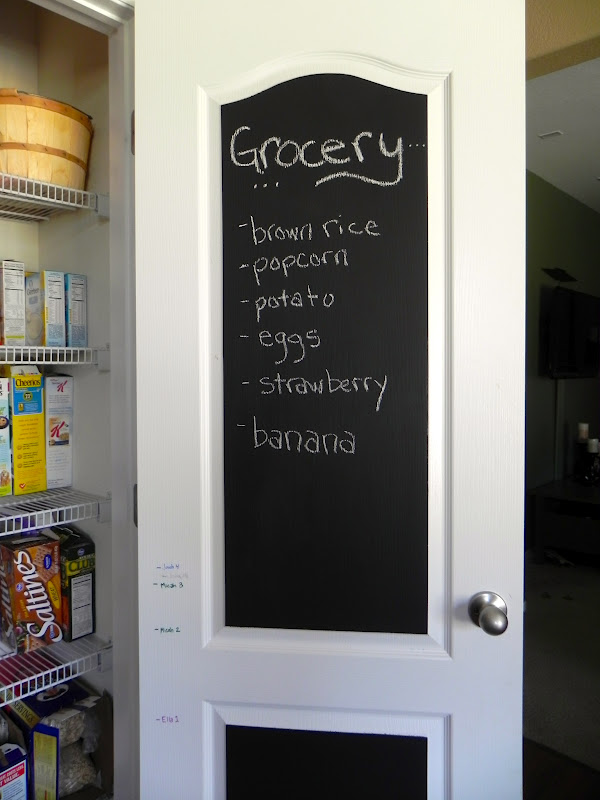 Grocery...
...
- brown rice
- popcorn
- potato
- eggs
- strawberry
- banana
Cheerios
K
Saltines
- Micah 3
- Micah 2
- Ella 1